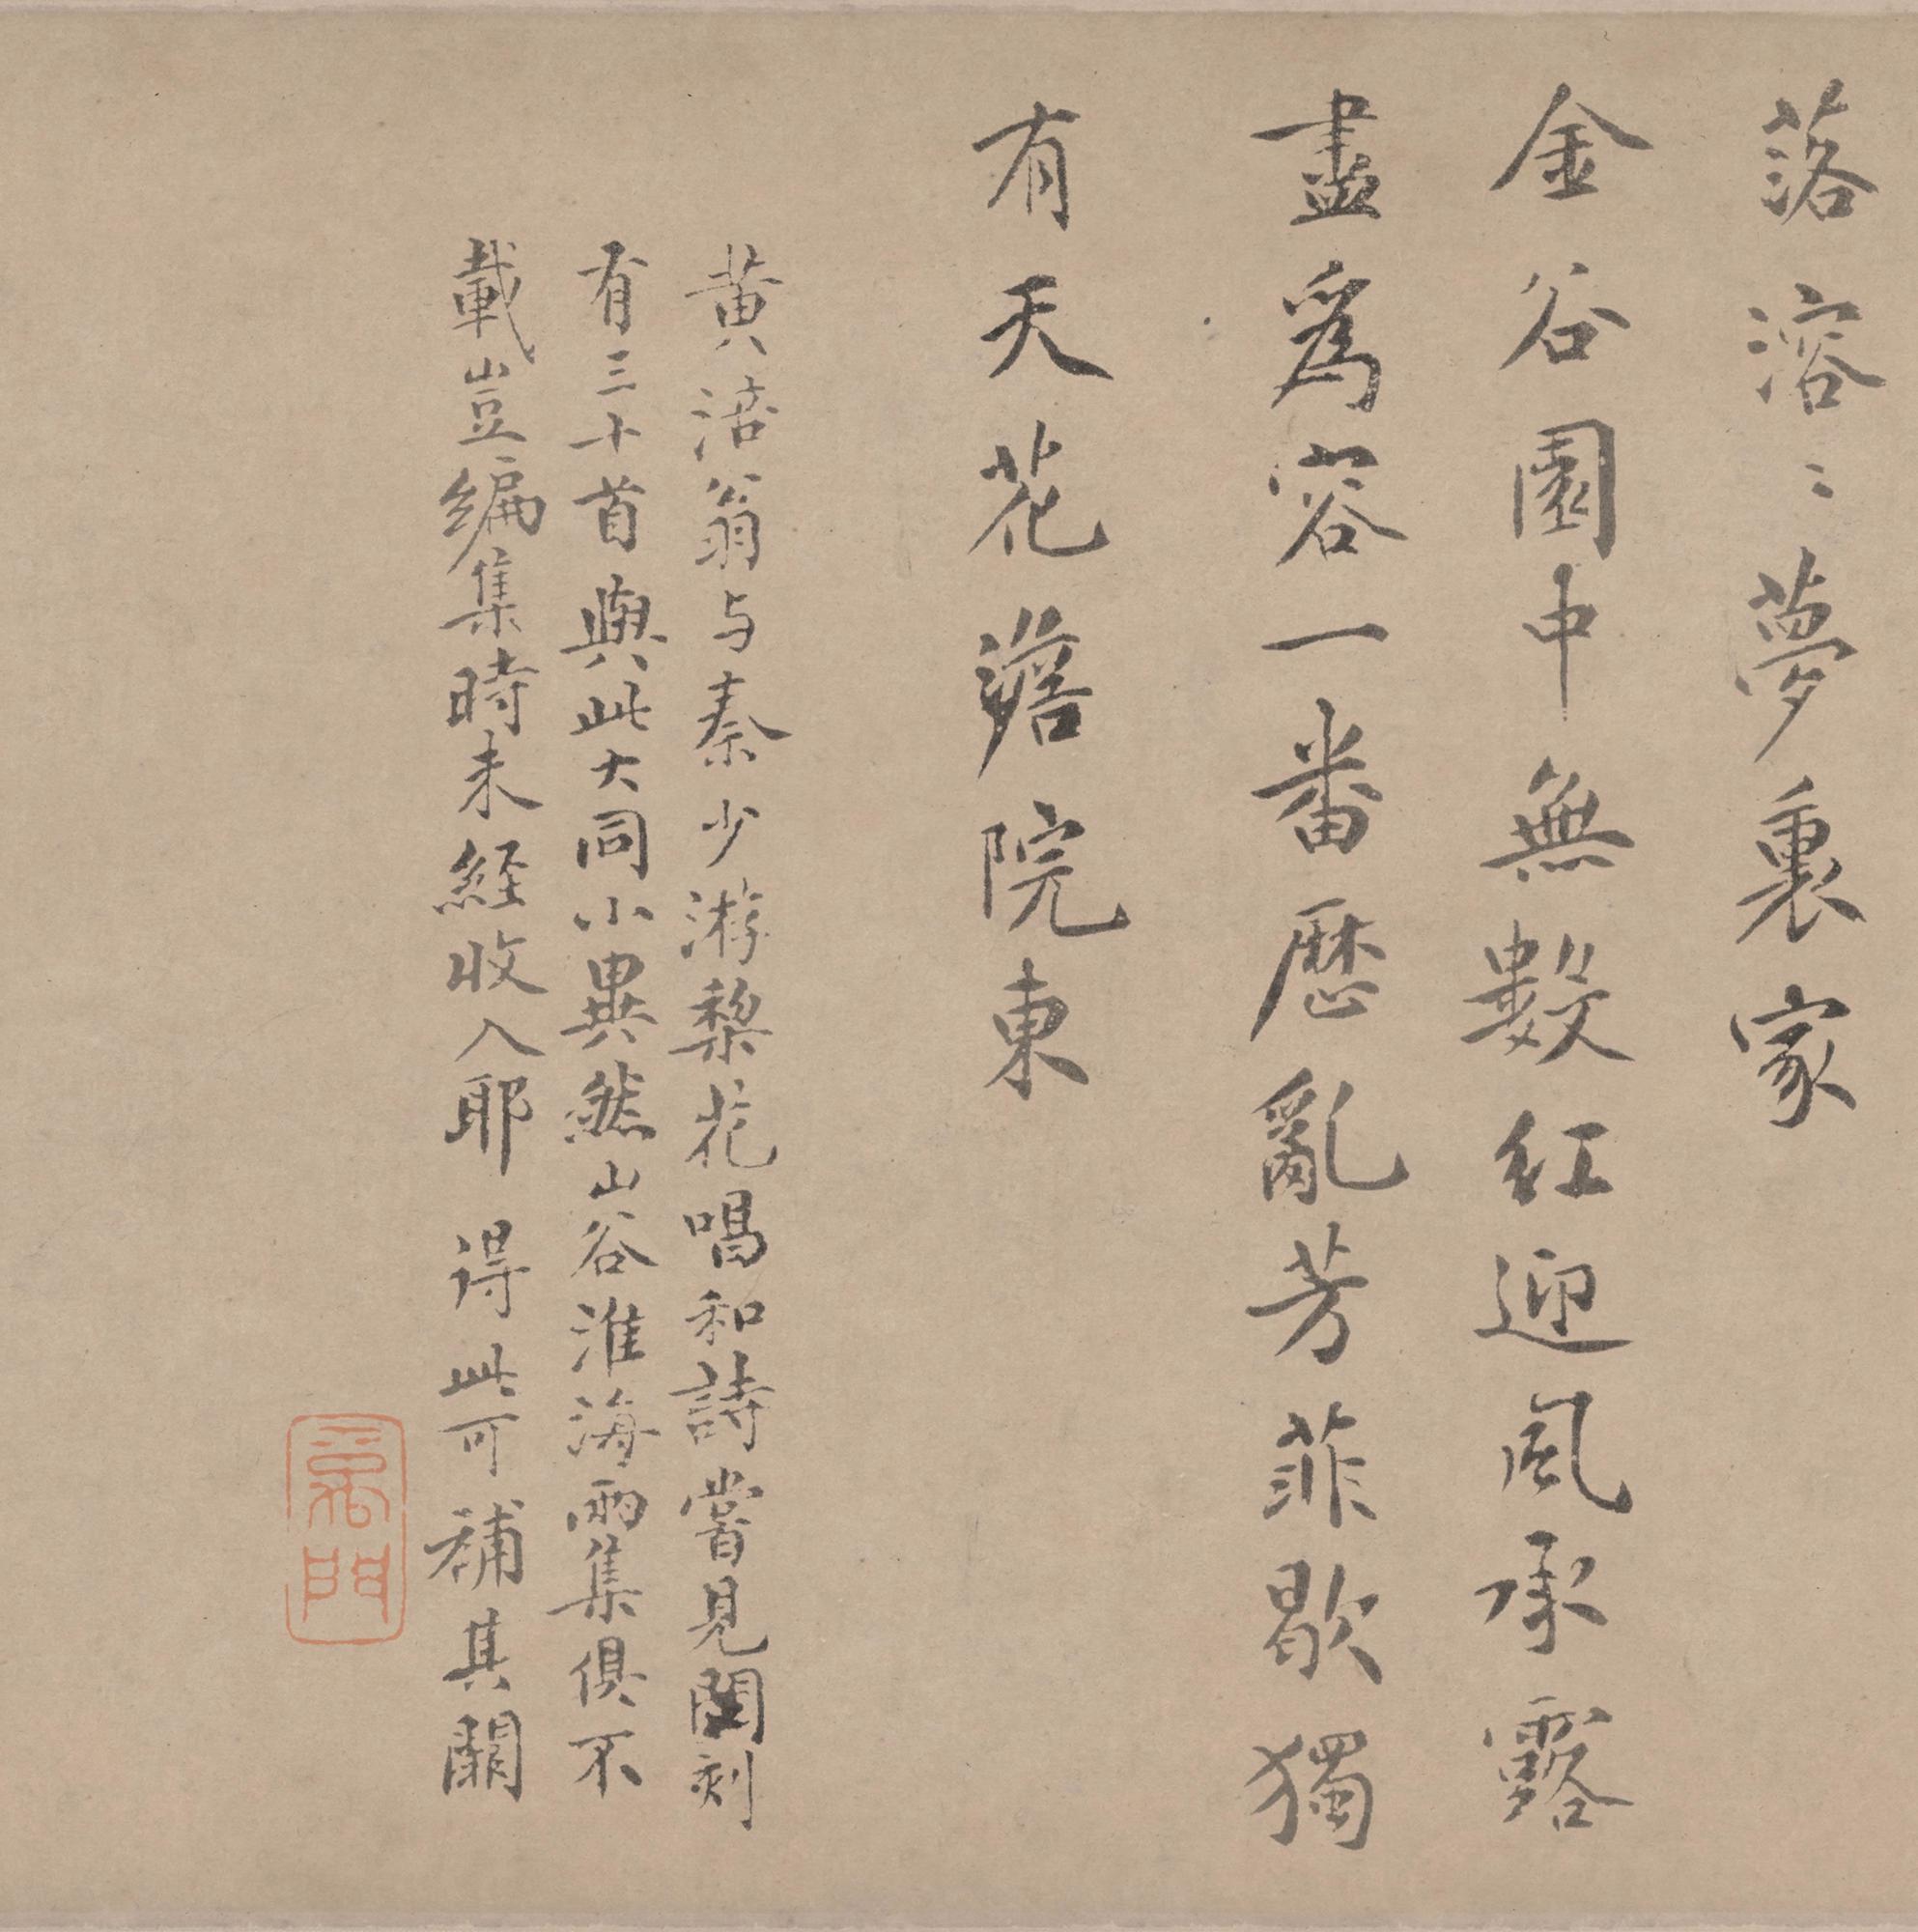 落溶〻夢裏家
金谷園中無數紅迎風承露
盡為容一番歷亂芳菲歇獨
有天花澹院東
黃涪翁与秦少游梨花唱和詩嘗見閣刻
有三十首與此大同小異然山谷淮海兩集俱不
載豈編集時未經收入耶得此可補其闕